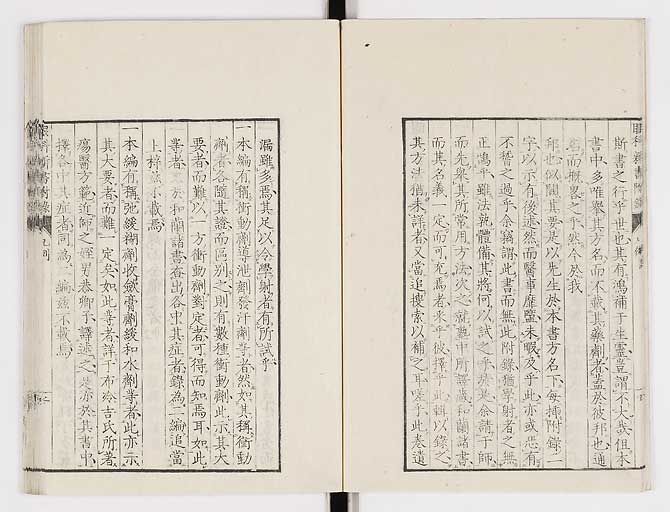 斯書之行乎世也其有鴻補于生靈豈謂不大哉但本
書中多唯擧其方名而不載其藥劑者蓋於彼邦也通
名而概畧之乎然今於我
邦也以闕其要是以先生於本書方名下每揷附錄二
字以示有後述然而醫事靡盬未暇及乎此亦或恐有
不稽之過乎余竊謂此書而無此附錄猶學射者之無
正鵠乎雖法執體備其將何以試之乎於是余請于師
而先舉其所常用方法次之就塾中所譯蔵和蘭諸書
而其名義一定而可充焉者來乎彼擇乎此輯以錄之
其方法猶未詳者又當追搜索以補之耳嗟乎此卷遺
漏雖多焉其足以令學射者有所試乎
一本編有稱衝動劑導泄劑發汗劑等者然如其稱衝動
劑者各隨其證而區別之則有數種衝動劑此示其大
要者而難以一方衝動劑對定者可得而知焉耳如此
等者於和蘭諸書舂出各中其症者錄為二編追當
上梓茲不載焉
一本編有稱弛緩糊劑收斂膏劑緩和水劑等者此亦示
其大要者而難一定矣如此等者詳于布冷吉氏所著
瘍醫方範近師之姪男巷卿子譯述之染亦於其書中
擇各中其症者同為二編茲不載焉
眼科新書附錄